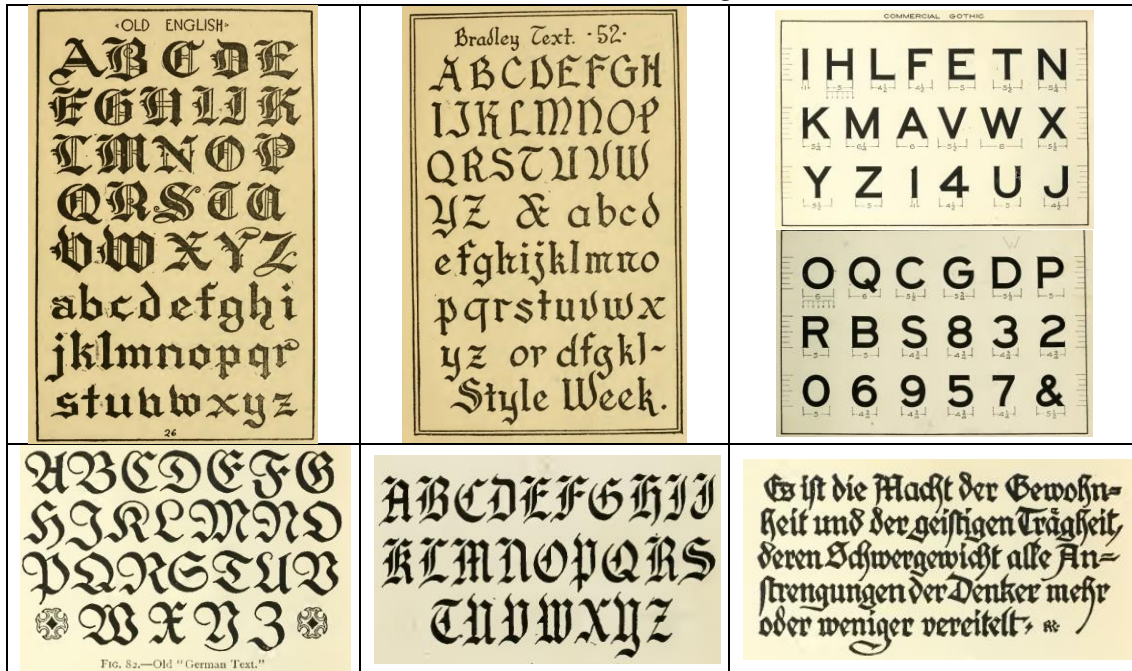 ‹OLD ENGLISH›
A B C D E
F G H I J K
L M N O P
Q R S T U
V W X Y Z
a b c d e f g h i
j k l m n o p q r
s t u v w x y z
26
Bradley Text. ·52·
A B C D E F G H
I J K L M N O P
Q R S T U V W
Y Z & a b c d
e f g h i j k l m n o
p q r s t u v w x
y z or d f g k l -
Style Week.
COMMERCIAL GOTHIC
I H L F E T N
K M A V W X
Y Z 1 4 U J
O Q C G D P
R B S 8 3 2
0 6 9 5 7 &
A B C D E F G
H J K L M N O
P Q R S T U V
W X Y Z
FIG. 82.—Old "German Text."
A B C D E F G H I J
K L M N O P Q R S
T U V W X Y Z
Es iſt die Macht der Gewohn=
heit und der geiſtigen Trägheit,
deren Schwergewicht alle An=
ſtrengungen der Denker mehr
oder weniger vereitelt.